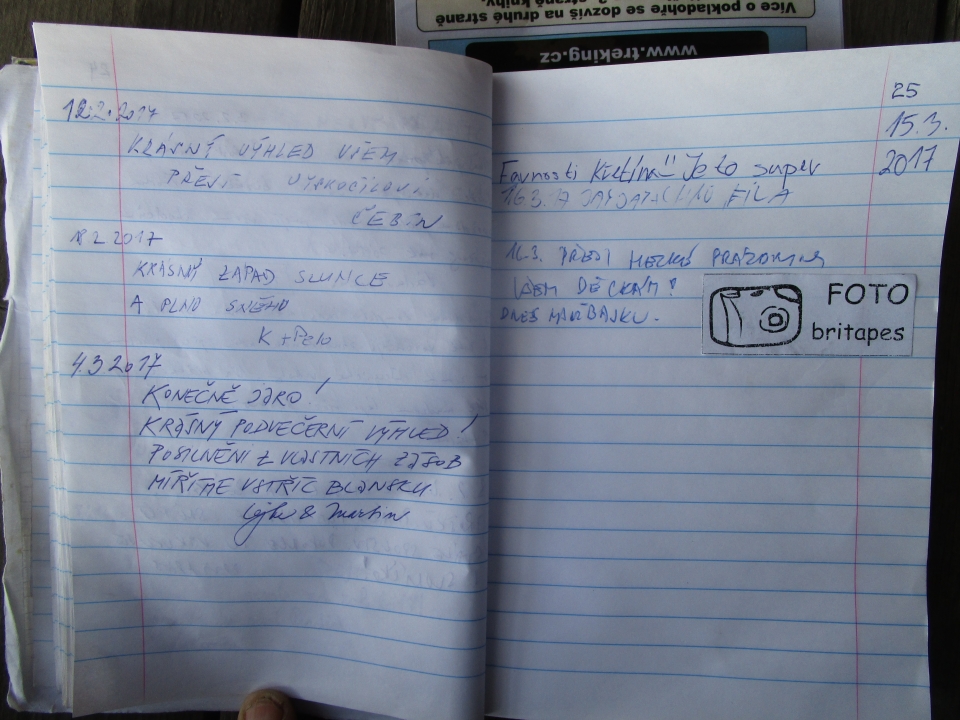 Více o pokladohře se dozvíš na druhé straně
www.treking.cz
12.2.2017
KRÁSNÝ VÝHLED VŠEM
PŘEJÍ VYSKOČILOVI
ČEBÍN
2 2017
KRÁSNÝ ZÁPAD SLUNCE
A PLNO SNĚHU
K +
4.3 2017
KONEČNĚ JARO!
KRÁSNÝ PODVEČERNÍ VÝHLED!
POSILNĚNI Z VLASTNÍCH ZÁSOB
MÍŘÍME VSTŘÍC BLANSKU
& Martin
25
15.3.
2017
Je to super
16.3. A
16.3. PŘEJI HEZKÉ
VŠEM DĚCKÁM!
DNES
FOTO
britapes